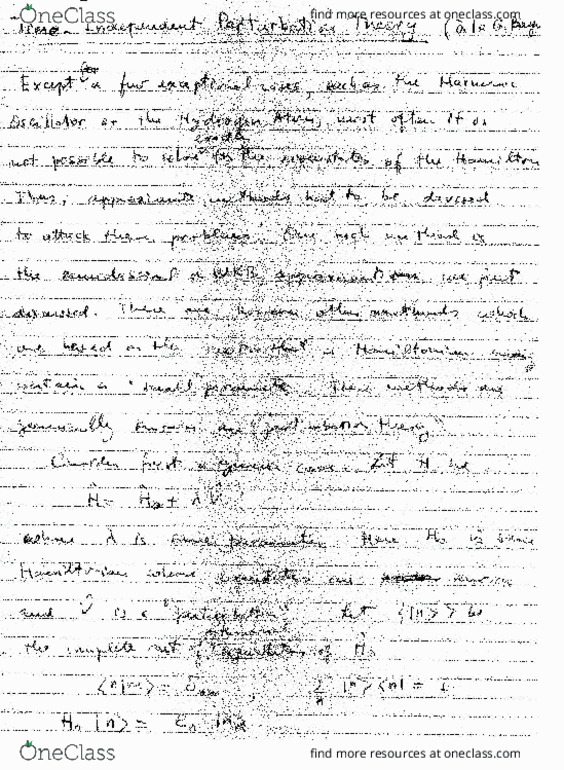 OneClass find more resources at oneclass.com
Time-Independent Perturbation Theory (also G. Baym
Except for a few exceptional cases, such as the Harmonic
Oscillator or the Hydrogen Atom, most often it is
not possible to solve for the exact eigenstates of the Hamilton
Thus, approximate methods had to be devised
to attack these problems. One such method is
the semiclassical a WKB approximation we just
discussed. There are, however other methods which
are based on the that a Hamiltonian may
contain a "small" parameter. These methods are
generally known as "perturbation theory"
Consider first a generic case. Let H be
Ĥ = Ĥ₀ + λ V̂
where λ is some parameter Here H₀ is some
Hamiltonian whose eigenstates are known
and V̂ is a "perturbation". Let {|n>} be
the complete set of eigenstates of Ĥ₀
<n|m> = δₙₘ , Σₙ |n><n| = 1
H₀ |n> = εₙ |n>
OneClass find more resources at oneclass.com